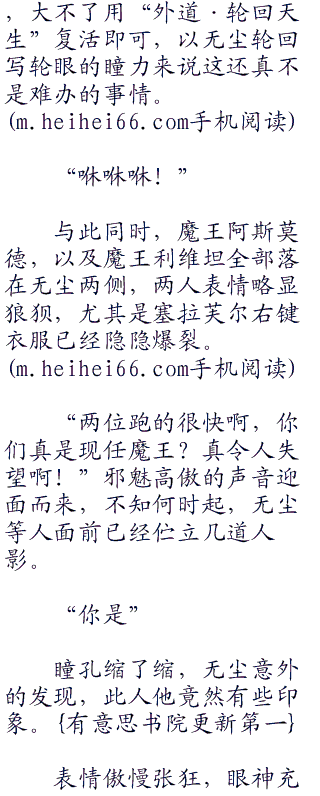 ，大不了用“外道·轮回天
生”复活即可，以无尘轮回
写轮眼的瞳力来说这还真不
是难办的事情。
(m.heihei66.com手机阅读)
“咻咻咻！”
与此同时，魔王阿斯莫
德，以及魔王利维坦全部落
在无尘两侧，两人表情略显
狼狈，尤其是塞拉芙尔右键
衣服已经隐隐爆裂。
(m.heihei66.com手机阅读)
“两位跑的很快啊，你
们真是现任魔王？真令人失
望啊！”邪魅高傲的声音迎
面而来，不知何时起，无尘
等人面前已经伫立几道人
影。
“你是”
瞳孔缩了缩，无尘意外
的发现，此人他竟然有些印
象。{有意思书院更新第一}
表情傲慢张狂，眼神充